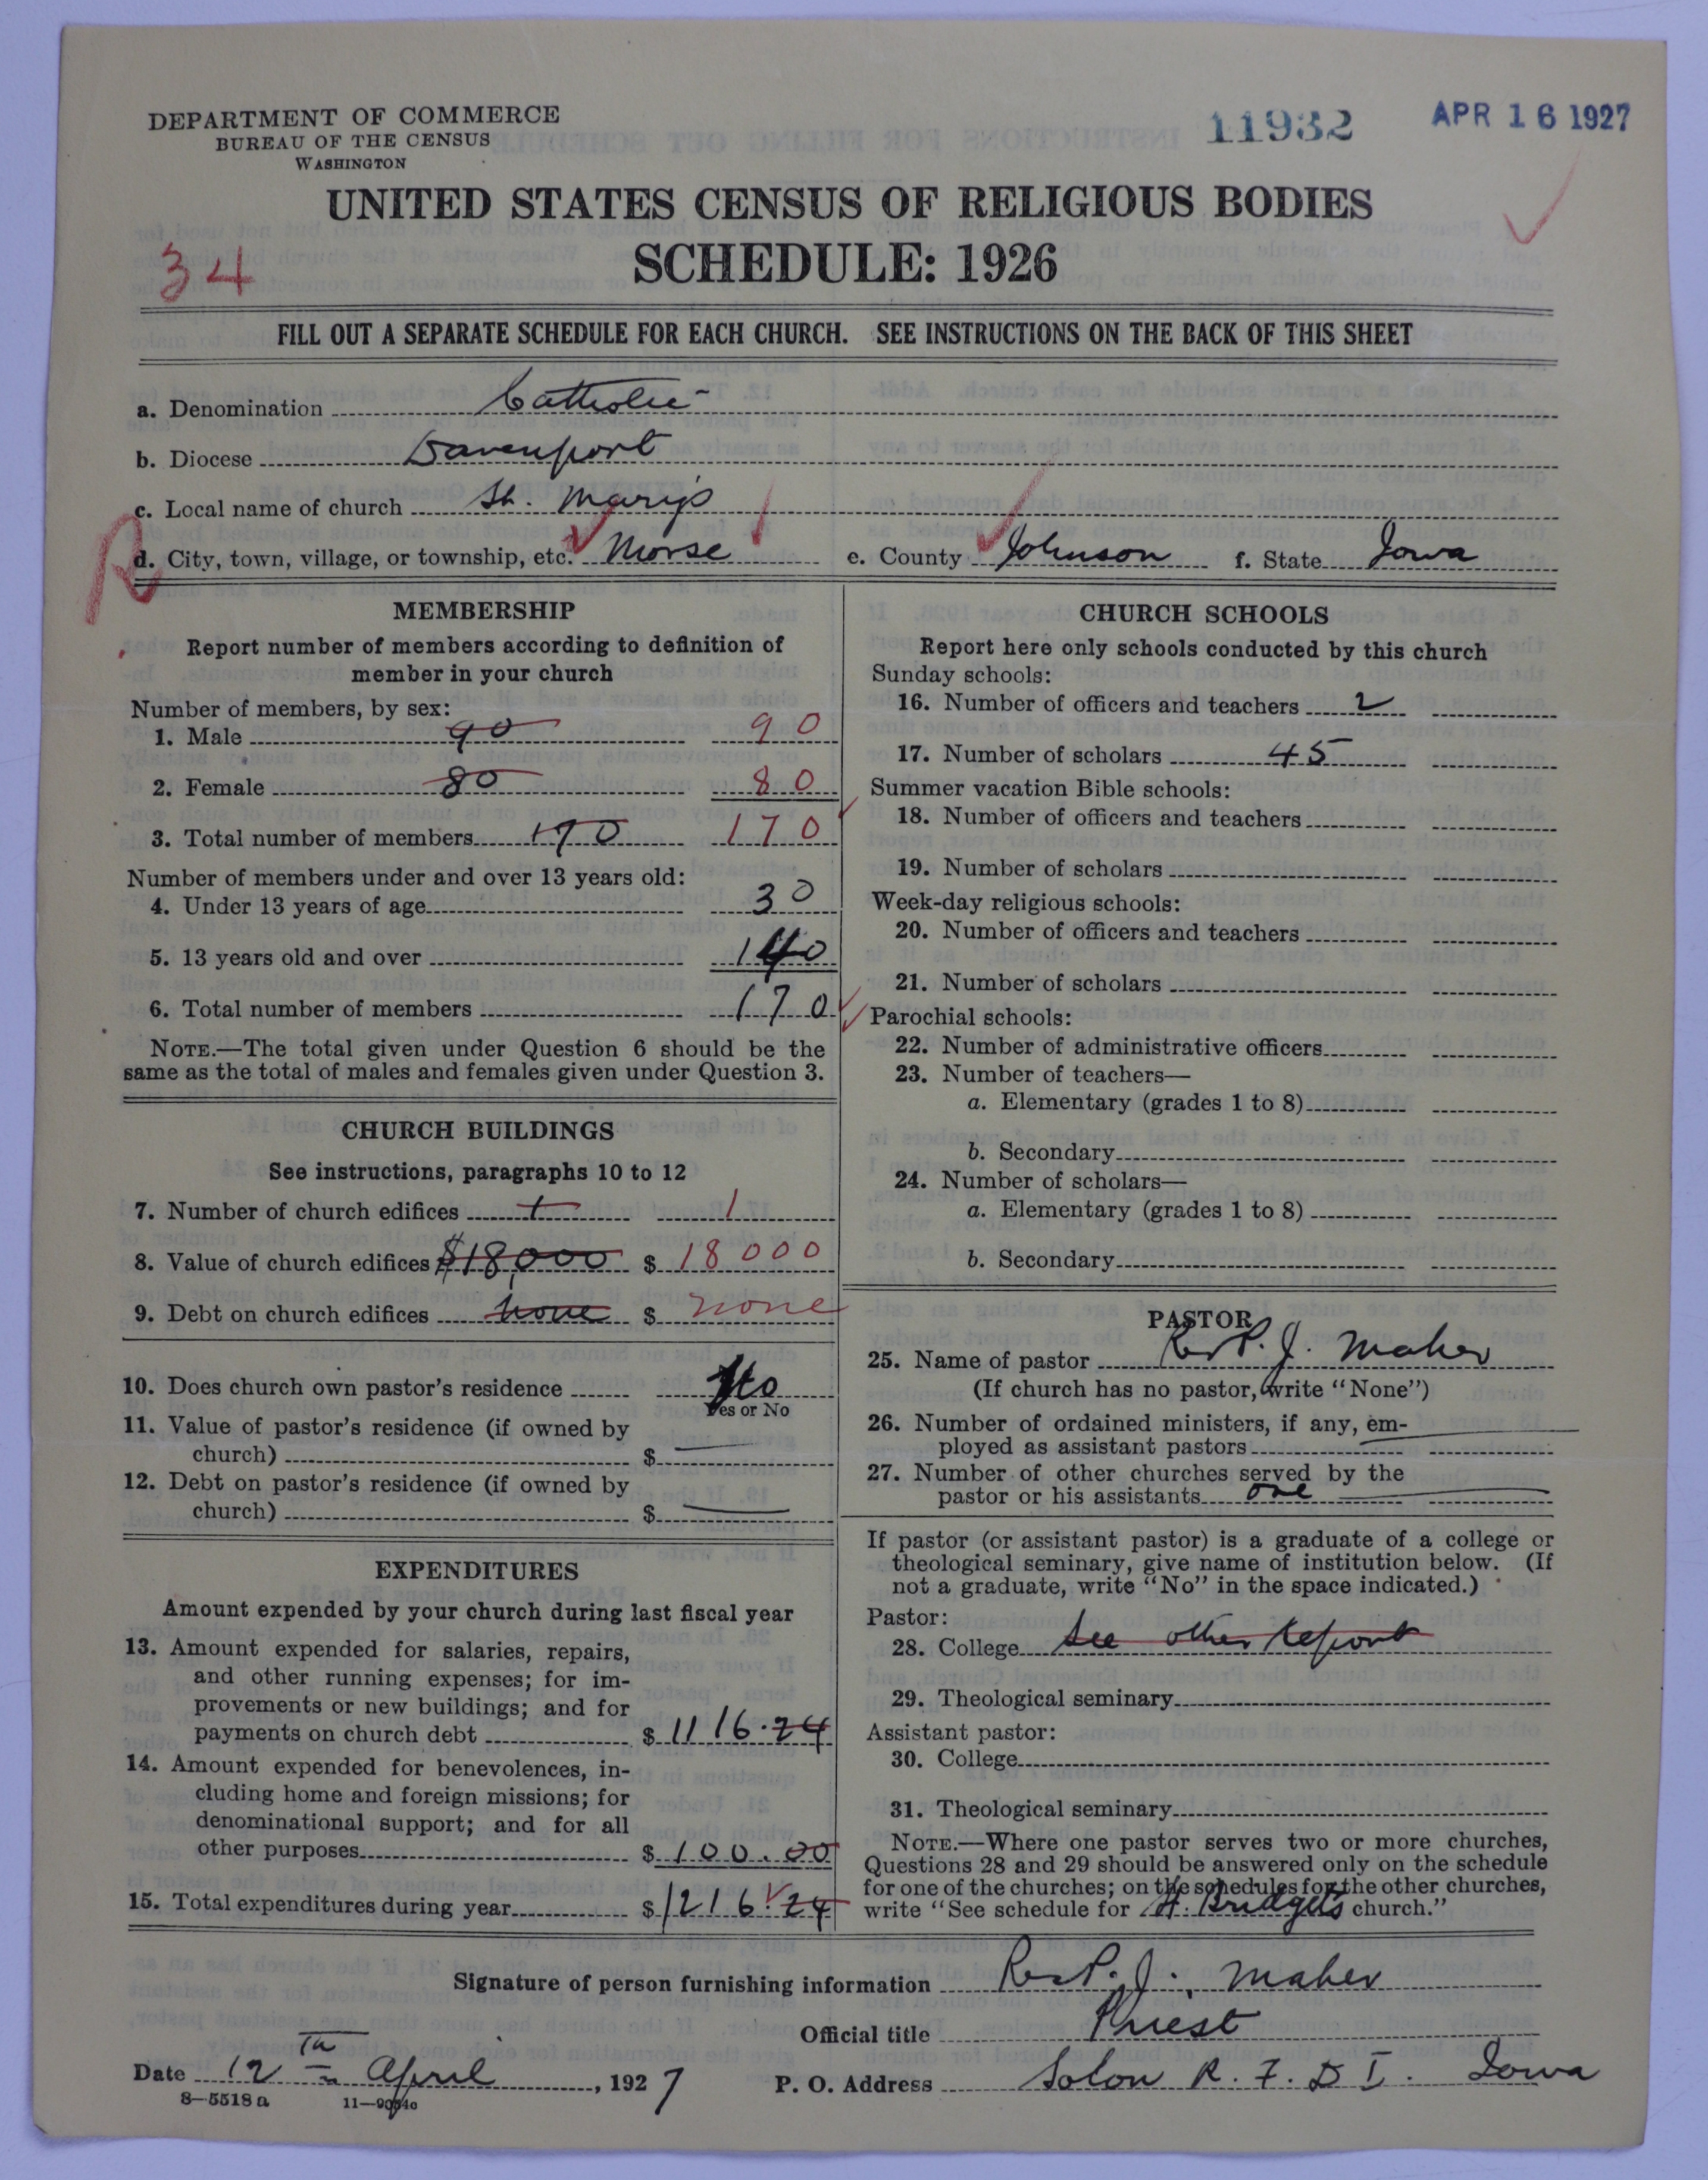 DEPARTMENT OF COMMERCE
BUREAU OF THE CENSUS
WASHINGTON
11932
APR 16 1927
UNITED STATES CENSUS OF RELIGIOUS BODIES
SCHEDULE: 1926
34
FILL OUT A SEPARATE SCHEDULE FOR EACH CHURCH. SEE INSTRUCTIONS ON THE BACK OF THIS SHEET
a. Denomination Catholic
b. Diocese Davenport
c. Local name of church St. Mary's
d. City, town, village, or township, etc. Morse e. County Johnson f. State Iowa
R
MEMBERSHIP
Report number of members according to definition of
member in your church
Number of members, by sex:
1. Male 90 90
2. Female 80 80
3. Total number of members 170 170
Number of members under and over 13 years old:
4. Under 13 years of age 30
5. 13 years old and over 140
6. Total number of members 170
NOTE.—The total given under Question 6 should be the
same as the total of males and females given under Question 3.
CHURCH BUILDINGS
See instructions, paragraphs 10 to 12
7. Number of church edifices 1 1
8. Value of church edifices $18,000 $ 18000
9. Debt on church edifices none $ none
10. Does church own pastor's residence No
Yes or No
11. Value of pastor's residence (if owned by
church) $ —
12. Debt on pastor's residence (if owned by
church) $ —
EXPENDITURES
Amount expended by your church during last fiscal year
13. Amount expended for salaries, repairs,
and other running expenses; for im-
provements or new buildings; and for
payments on church debt $ 1116.24
14. Amount expended for benevolences, in-
cluding home and foreign missions; for
denominational support; and for all
other purposes $ 100.00
15. Total expenditures during year $ 1216.24
CHURCH SCHOOLS
Report here only schools conducted by this church
Sunday schools:
16. Number of officers and teachers 2
17. Number of scholars 45
Summer vacation Bible schools:
18. Number of officers and teachers
19. Number of scholars
Week-day religious schools:
20. Number of officers and teachers
21. Number of scholars
Parochial schools:
22. Number of administrative officers
23. Number of teachers—
a. Elementary (grades 1 to 8)
b. Secondary
24. Number of scholars—
a. Elementary (grades 1 to 8)
b. Secondary
PASTOR
25. Name of pastor Rev P. J. Maher
(If church has no pastor, write "None")
26. Number of ordained ministers, if any, em-
ployed as assistant pastors —
27. Number of other churches served by the
pastor or his assistants one —
If pastor (or assistant pastor) is a graduate of a college or
theological seminary, give name of institution below. (If
not a graduate, write "No" in the space indicated.)
Pastor:
28. College See other Report
29. Theological seminary
Assistant pastor:
30. College
31. Theological seminary
NOTE.—Where one pastor serves two or more churches,
Questions 28 and 29 should be answered only on the schedule
for one of the churches; on the schedules for the other churches,
write "See schedule for St. Bridget's church."
Signature of person furnishing information Rev P. J. Maher
Official title Priest
Date 12th April, 1927 P. O. Address Solon R. F. D I. Iowa
8—5518a